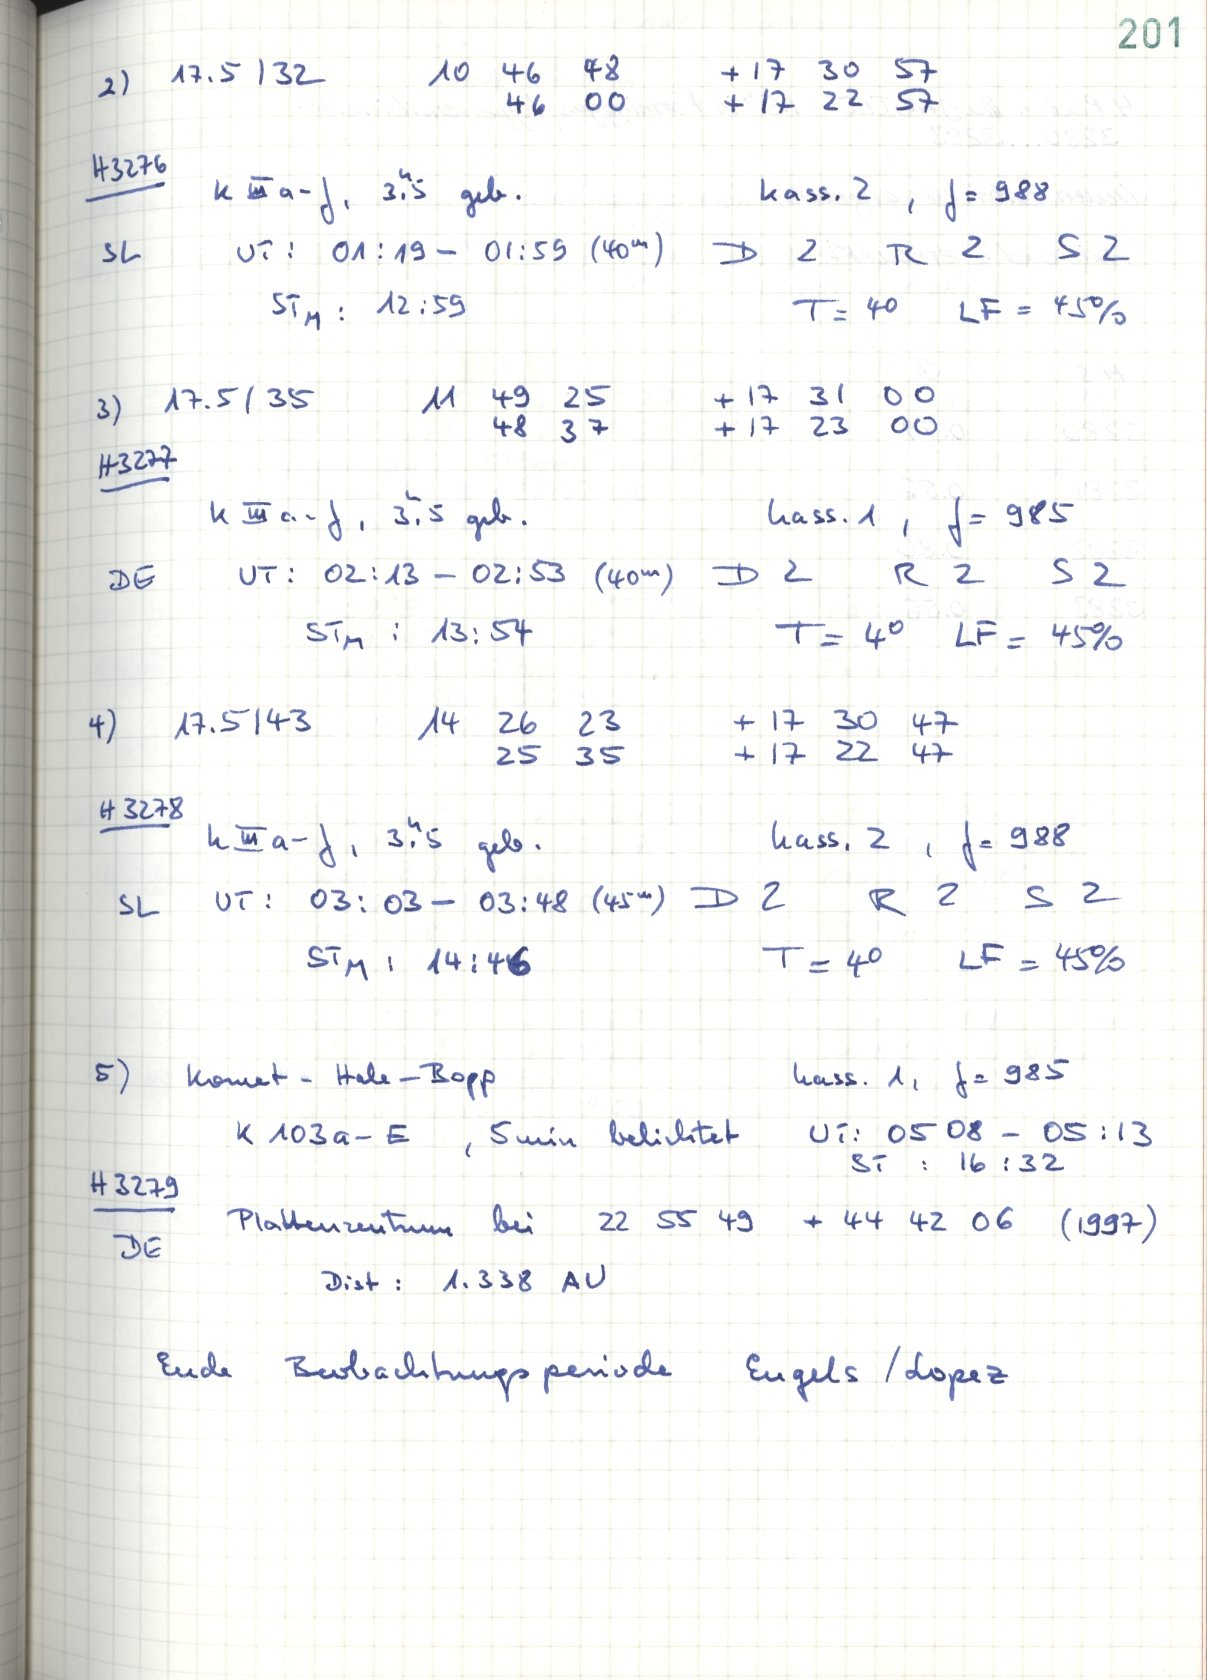 201
2) 17.5/32 10 46 48 +17 30 57
46 00 +17 22 57
H3276
K IIIa-J, 3.ʰ5 geb. Kass. 2, f=988
SL UT: 01:19 - 01:59 (40ᵐ) D 2 R 2 S 2
STM: 12:59 T=4° LF = 45%
3) 17.5/35 11 49 25 +17 31 00
48 37 +17 23 00
H3277
K IIIa-J, 3.ʰ5 geb. Kass. 1, f=985
DE UT: 02:13 - 02:53 (40ᵐ) D 2 R 2 S 2
STM: 13:54 T=4° LF = 45%
4) 17.5/43 14 26 23 +17 30 47
25 35 +17 22 47
H3278
K IIIa-J, 3.ʰ5 geb. Kass. 2, f=988
SL UT: 03:03 - 03:48 (45ᵐ) D 2 R 2 S 2
STM: 14:46 T=4° LF = 45%
5) Komet-Hale-Bopp Kass. 1, f=985
K 103a-E, 5min belichtet UT: 05 08 - 05:13
ST: 16:32
H3279
Plattenzentrum bei 22 55 49 +44 42 06 (1997)
DE
Dist: 1.338 AU
Ende Beobachtungsperiode Engels/Lopez